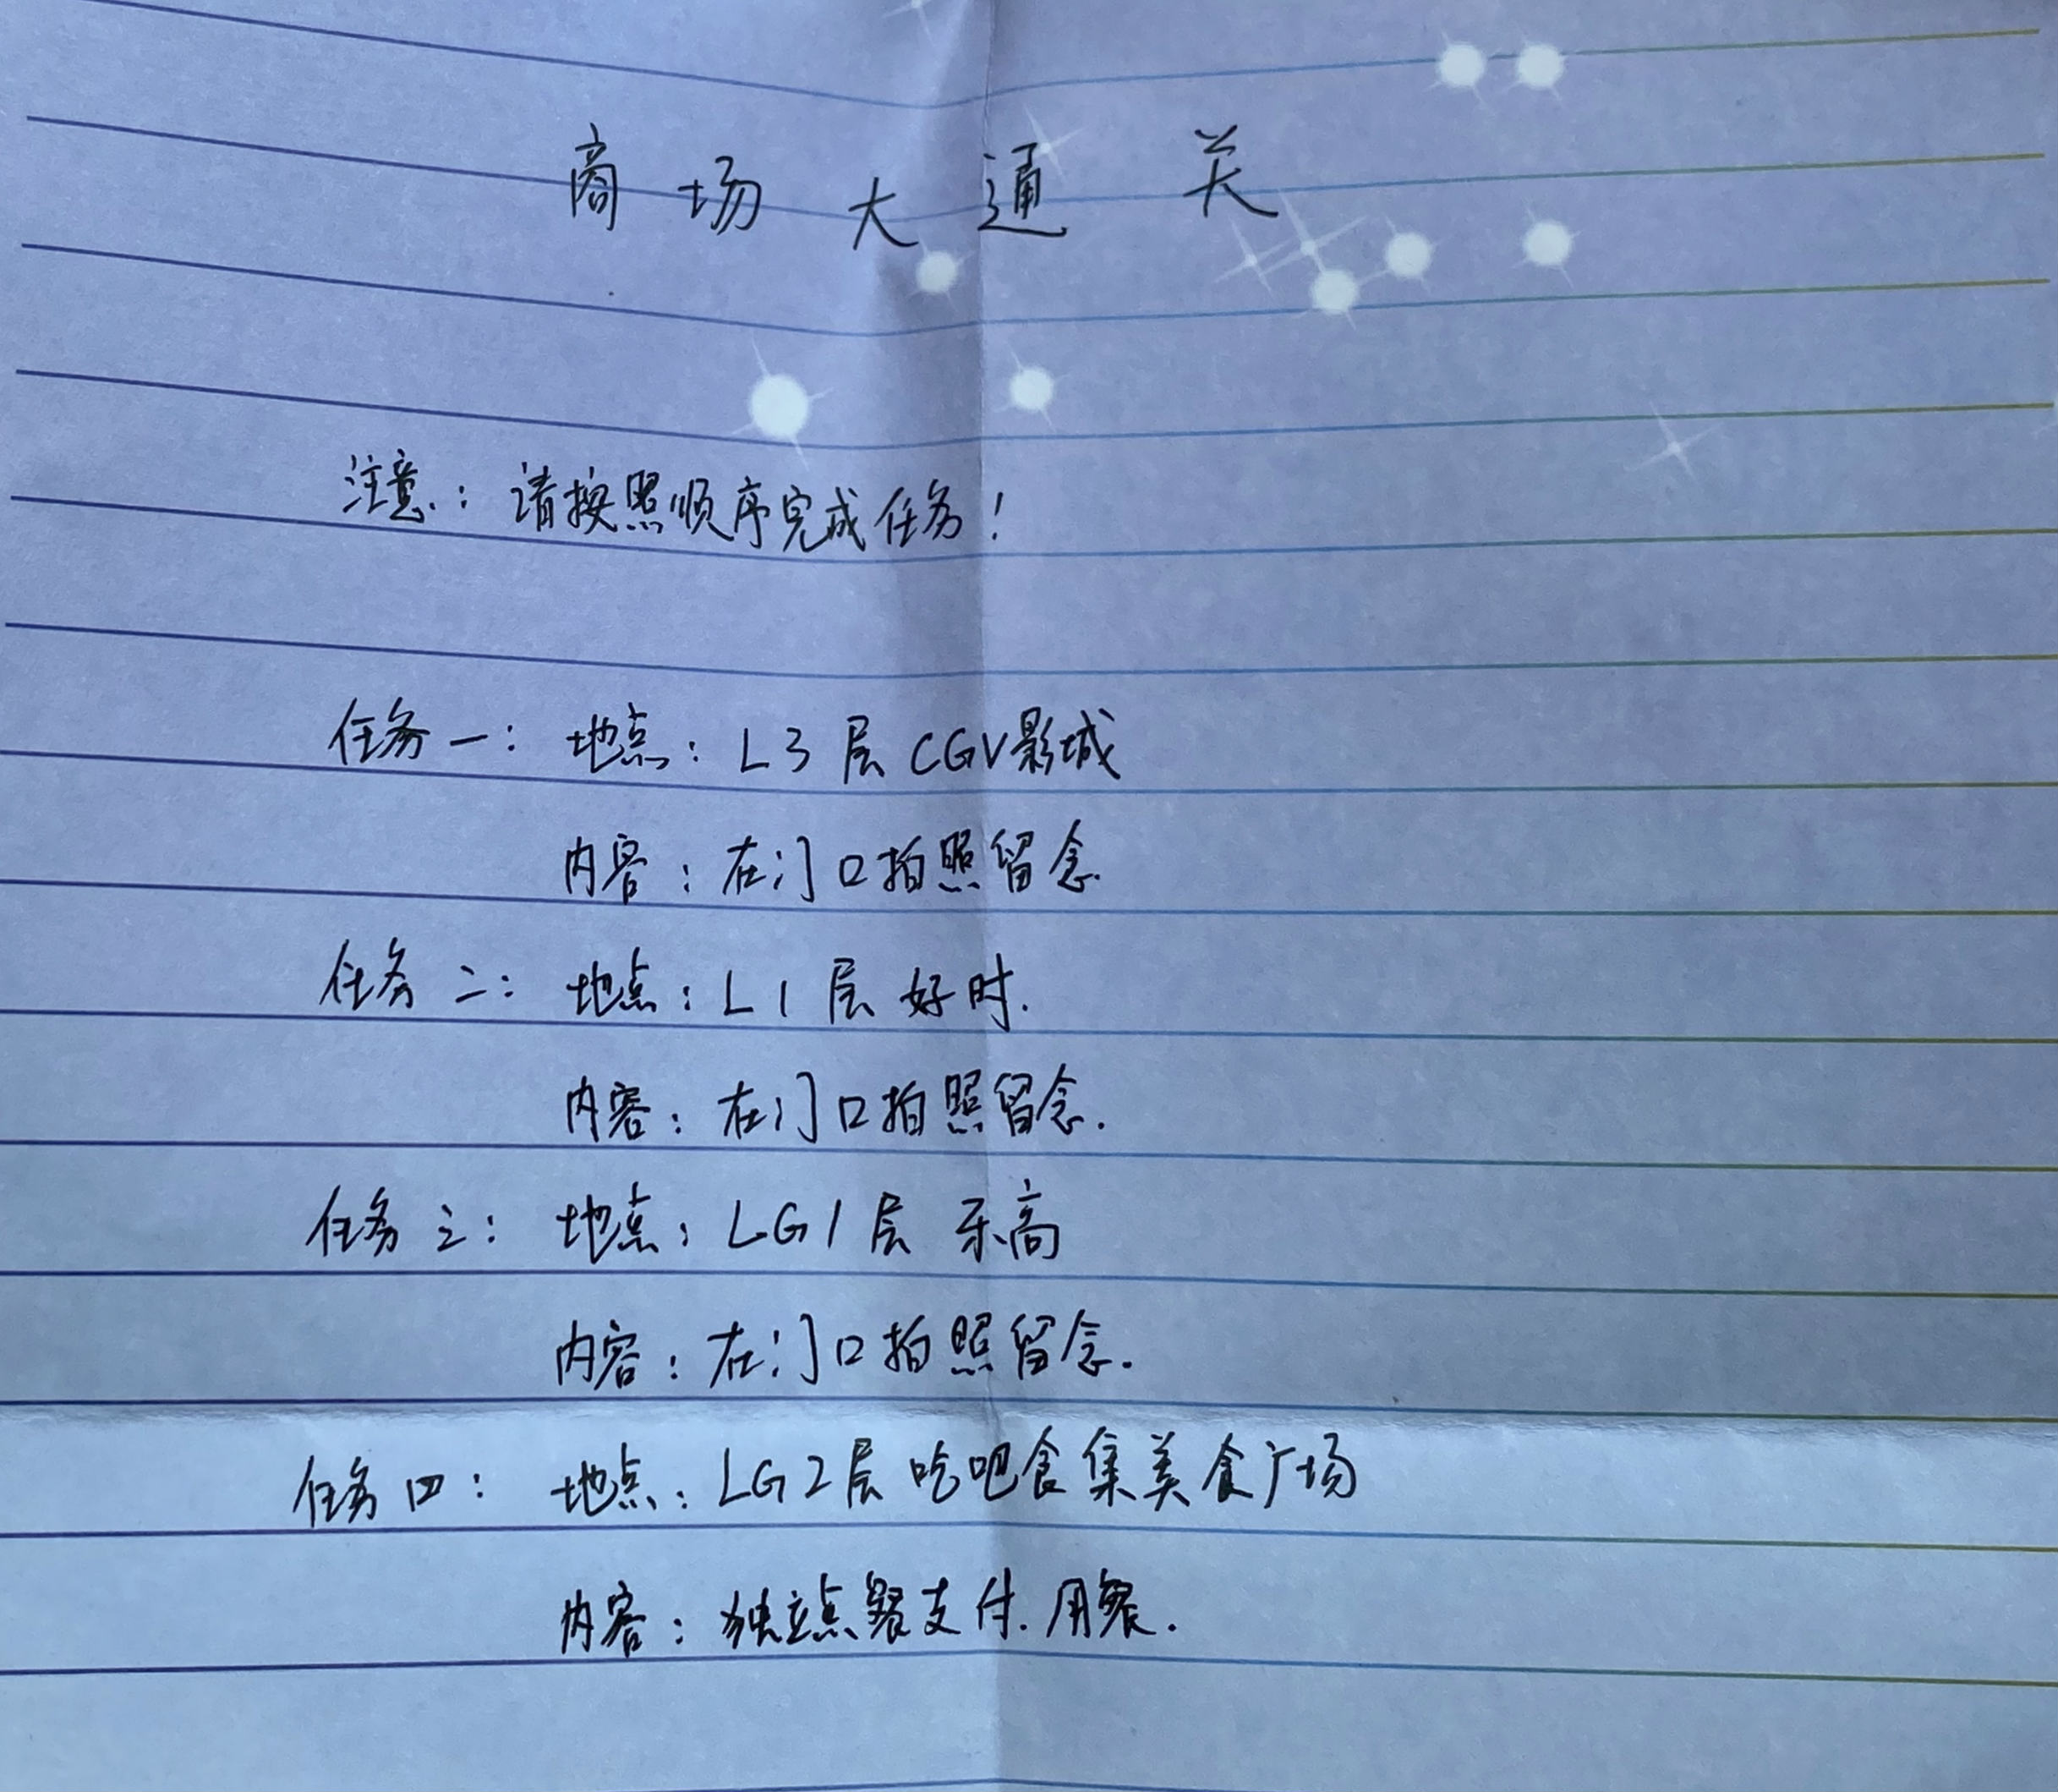 商场大通关
注意：请按照顺序完成任务！
任务一：地点：L3层CGV影城
内容：在门口拍照留念.
任务二：地点：L1层 好时.
内容：在门口拍照留念.
任务三：地点：LG1层 乐高
内容：在门口拍照留念.
任务四：地点：LG2层吃吧食集美食广场
内容：独立点餐支付.用餐.